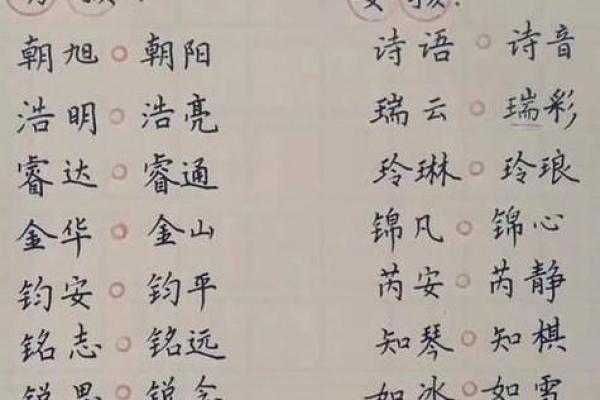 朝旭○朝阳
浩明○浩亮
睿达○睿通
金华○金山
钧安○钧平
铭志○铭远
锐思○锐念
女孩:
诗语○诗音
瑞云○瑞彩
玲琳○玲琅
锦凡○锦心
芮安○芮静
知琴○知棋
如冰○如雪